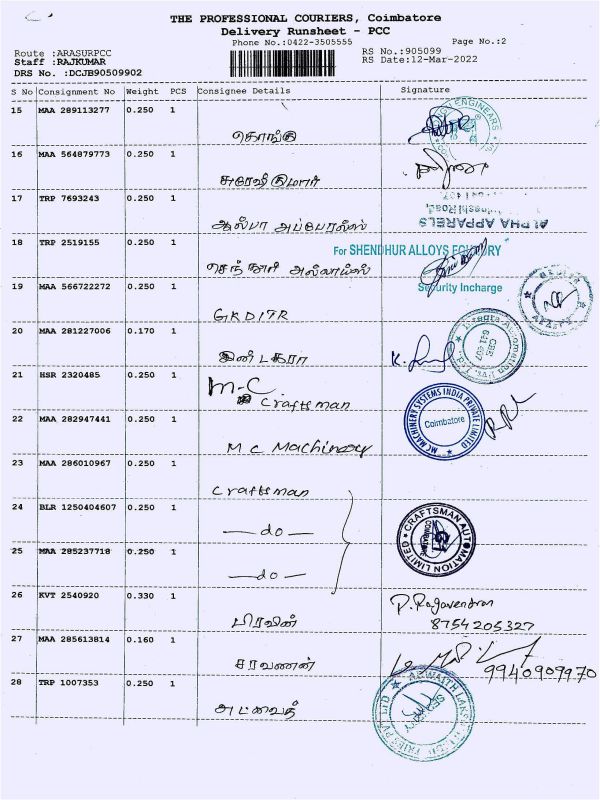 THE PROFESSIONAL COURIERS, Coimbatore
Delivery Runsheet - PCC
Phone No.:0422-3505555
Page No.:2
Route :ARASURPCC
RS No.:905099
Staff :RAJKUMAR
RS Date:12-Mar-2022
DRS No. :DCJB90509902
S No Consignment No Weight PCS Consignee Details Signature
15 MAA 289113277 0.250 1
கொங்கு
16 MAA 564879773 0.250 1
சுரேஷ்குமார்
17 TRP 7693243 0.250 1
ஆல்பா அப்பேரல்ஸ்
ALPHA APPARELS
18 TRP 2519155 0.250 1
For SHENDHUR ALLOYS FOUNDRY
அல்லாய்ஸ்
Security Incharge
19 MAA 566722272 0.250 1
GKDITR
20 MAA 281227006 0.170 1
21 HSR 2320485 0.250 1
M-C
Craftsman
22 MAA 282947441 0.250 1
MC Machinery
MC MACHINERY SYSTEMS INDIA PRIVATE LIMITED
Coimbatore
23 MAA 286010967 0.250 1
Craftsman
24 BLR 1250404607 0.250 1
— do —
CRAFTSMAN AUTOMATION LIMITED
25 MAA 285237718 0.250 1
— do —
26 KVT 2540920 0.330 1
பிரவின்
P. Ragavendran
8754205327
27 MAA 285613814 0.160 1
சரவணன்
9940909970
28 TRP 1007353 0.250 1
அட்வைத்